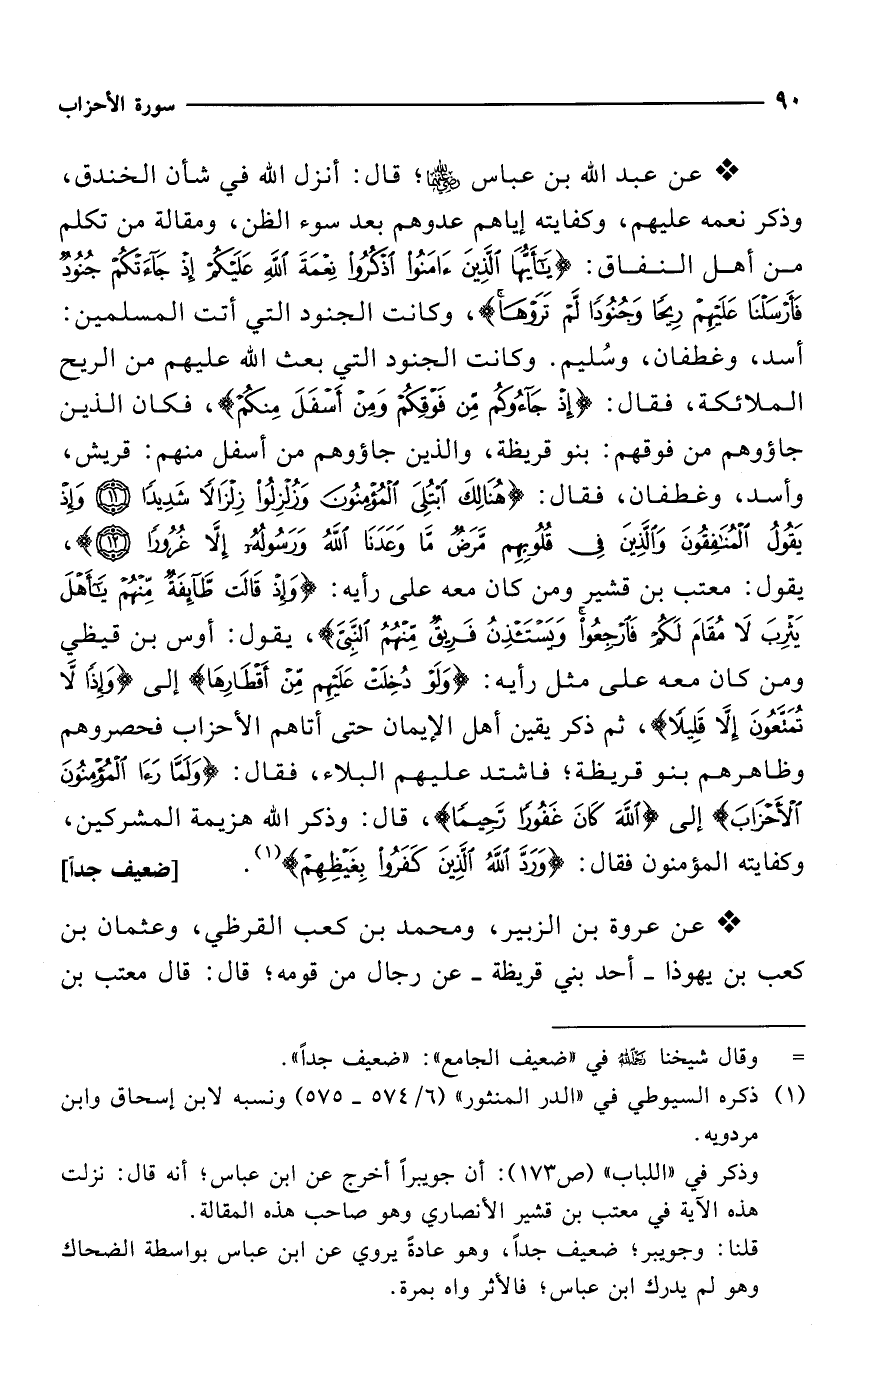 ٩٠ سورة الأحزاب
❖ عن عبد الله بن عباس ﵄؛ قال: أنزل الله في شأن الخندق،
وذكر نعمه عليهم، وكفايته إياهم عدوهم بعد سوء الظن، ومقالة من تكلم
من أهل النفاق: ﴿يَٰٓأَيُّهَا ٱلَّذِينَ ءَامَنُوا۟ ٱذْكُرُوا۟ نِعْمَةَ ٱللَّهِ عَلَيْكُمْ إِذْ جَآءَتْكُمْ جُنُودٌ
فَأَرْسَلْنَا عَلَيْهِمْ رِيحًا وَجُنُودًا لَّمْ تَرَوْهَا ۚ﴾، وكانت الجنود التي أتت المسلمين:
أسد، وغطفان، وسُليم. وكانت الجنود التي بعث الله عليهم من الريح
الملائكة، فقال: ﴿إِذْ جَآءُوكُم مِّن فَوْقِكُمْ وَمِنْ أَسْفَلَ مِنكُمْ﴾، فكان الذين
جاؤوهم من فوقهم: بنو قريظة، والذين جاؤوهم من أسفل منهم: قريش،
وأسد، وغطفان، فقال: ﴿هُنَالِكَ ٱبْتُلِىَ ٱلْمُؤْمِنُونَ وَزُلْزِلُوا۟ زِلْزَالًا شَدِيدًا ١١ وَإِذْ
يَقُولُ ٱلْمُنَٰفِقُونَ وَٱلَّذِينَ فِى قُلُوبِهِم مَّرَضٌ مَّا وَعَدَنَا ٱللَّهُ وَرَسُولُهُۥٓ إِلَّا غُرُورًا ١٢﴾،
يقول: معتب بن قشير ومن كان معه على رأيه: ﴿وَإِذْ قَالَت طَّآئِفَةٌ مِّنْهُمْ يَٰٓأَهْلَ
يَثْرِبَ لَا مُقَامَ لَكُمْ فَٱرْجِعُوا۟ ۚ وَيَسْتَـْٔذِنُ فَرِيقٌ مِّنْهُمُ ٱلنَّبِىَّ﴾، يقول: أوس بن قيظي
ومن كان معه على مثل رأيه: ﴿وَلَوْ دُخِلَتْ عَلَيْهِم مِّنْ أَقْطَارِهَا﴾ إلى ﴿وَإِذًا لَّا
تُمَتَّعُونَ إِلَّا قَلِيلًا﴾، ثم ذكر يقين أهل الإيمان حتى أتاهم الأحزاب فحصروهم
وظاهرهم بنو قريظة؛ فاشتد عليهم البلاء، فقال: ﴿وَلَمَّا رَءَا ٱلْمُؤْمِنُونَ
ٱلْأَحْزَابَ﴾ إلى ﴿ٱللَّهَ كَانَ غَفُورًا رَّحِيمًا﴾، قال: وذكر الله هزيمة المشركين،
وكفايته المؤمنون فقال: ﴿وَرَدَّ ٱللَّهُ ٱلَّذِينَ كَفَرُوا۟ بِغَيْظِهِمْ﴾(١). [ضعيف جداً]
❖ عن عروة بن الزبير، ومحمد بن كعب القرظي، وعثمان بن
كعب بن يهوذا ـ أحد بني قريظة ـ عن رجال من قومه؛ قال: قال معتب بن
= وقال شيخنا ﵀ في «ضعيف الجامع»: «ضعيف جداً».
(١) ذكره السيوطي في «الدر المنثور» (٦/ ٥٧٤ ـ ٥٧٥) ونسبه لابن إسحاق وابن
مردويه.
وذكر في «اللباب» (ص١٧٣): أن جويبراً أخرج عن ابن عباس؛ أنه قال: نزلت
هذه الآية في معتب بن قشير الأنصاري وهو صاحب هذه المقالة.
قلنا: وجويبر؛ ضعيف جداً، وهو عادةً يروي عن ابن عباس بواسطة الضحاك
وهو لم يدرك ابن عباس؛ فالأثر واه بمرة.